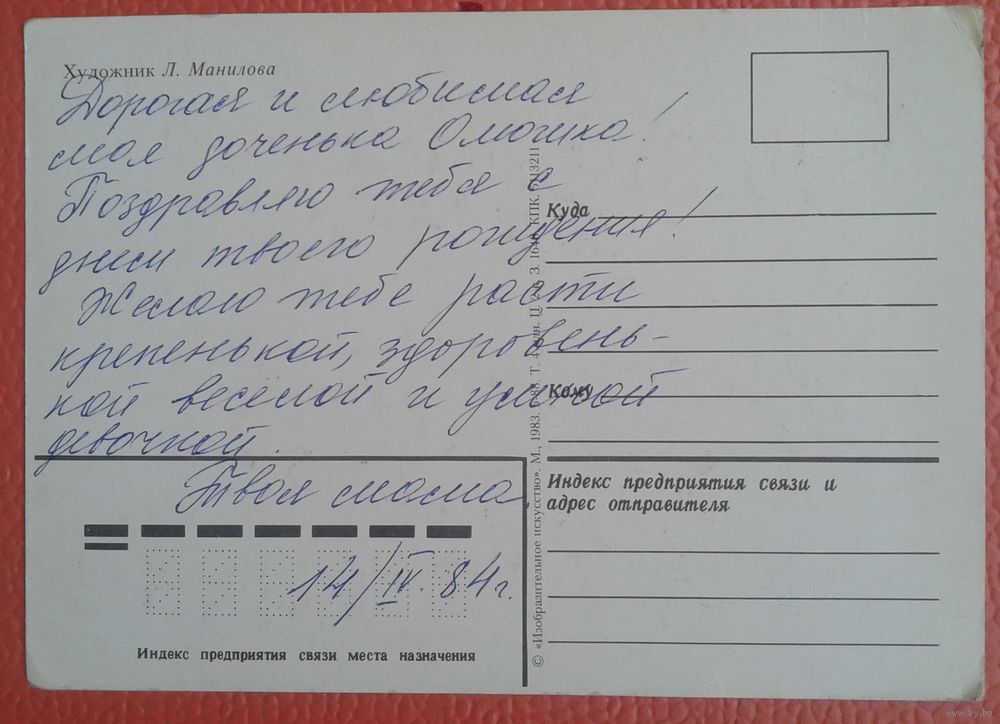 Художник Л. Манилова
Дорогая и любимая
моя доченька
Поздравляю тебя с
днем твоего рождения!
Желаю тебе расти
крепенькой, здоровень-
кой веселой и умной
девочкой.
Твоя мама.
14/IV. 84 г.
Индекс предприятия связи места назначения
© «Изобразительное искусство». М., 1983.
Куда
Кому
Индекс предприятия связи и
адрес отправителя
www.ay.by